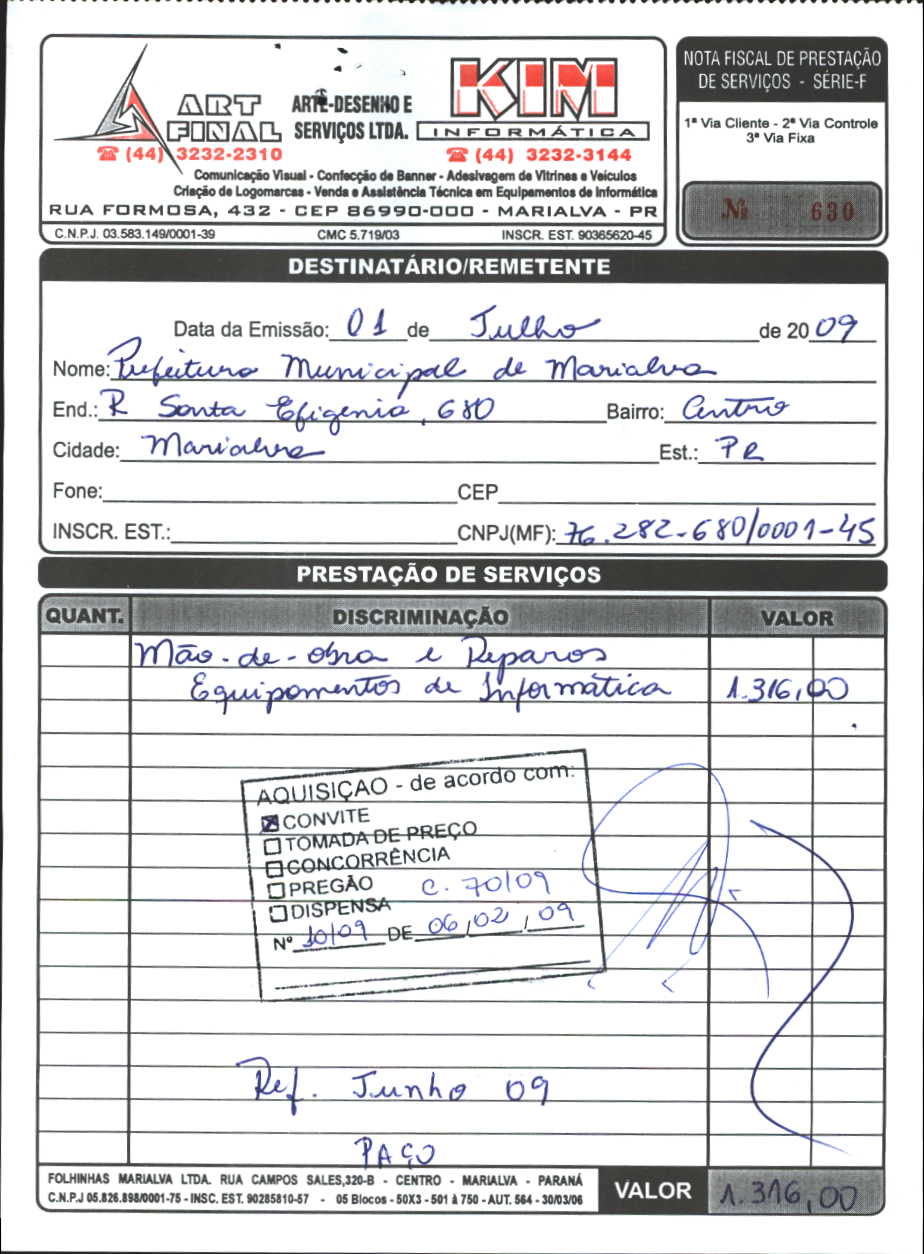 ART FINAL
ARTE-DESENHO E SERVIÇOS LTDA.
KIM INFORMÁTICA
☎ (44) 3232-2310
☎ (44) 3232-3144
Comunicação Visual - Confecção de Banner - Adesivagem de Vitrines e Veículos
Criação de Logomarcas - Venda e Assistência Técnica em Equipamentos de Informática
RUA FORMOSA, 432 - CEP 86990-000 - MARIALVA - PR
C.N.P.J. 03.583.149/0001-39 CMC 5.719/03 INSCR. EST. 90365620-45
NOTA FISCAL DE PRESTAÇÃO
DE SERVIÇOS - SÉRIE-F
1ª Via Cliente - 2ª Via Controle
3ª Via Fixa
Nº 630
DESTINATÁRIO/REMETENTE
Data da Emissão: 01 de Julho de 2009
Nome: Prefeitura Municipal de Marialva
End.: R Santa Efigenia, 680 Bairro: Centro
Cidade: Marialva Est.: PR
Fone: CEP
INSCR. EST.: CNPJ(MF): 76.282-680/0001-45
PRESTAÇÃO DE SERVIÇOS
QUANT. DISCRIMINAÇÃO VALOR
Mão-de-obra e Reparos
Equipamentos de Informática 1.316,00
AQUISIÇAO - de acordo com:
☒ CONVITE
☐ TOMADA DE PREÇO
☐ CONCORRÊNCIA
☐ PREGÃO C. 70/09
☐ DISPENSA
Nº 10/09 DE 06/02/09
Ref. Junho 09
PAÇO
FOLHINHAS MARIALVA LTDA. RUA CAMPOS SALES,320-B - CENTRO - MARIALVA - PARANÁ
C.N.P.J 05.826.898/0001-75 - INSC. EST. 90285810-57 - 05 Blocos - 50X3 - 501 À 750 - AUT. 564 - 30/03/06
VALOR 1.316,00